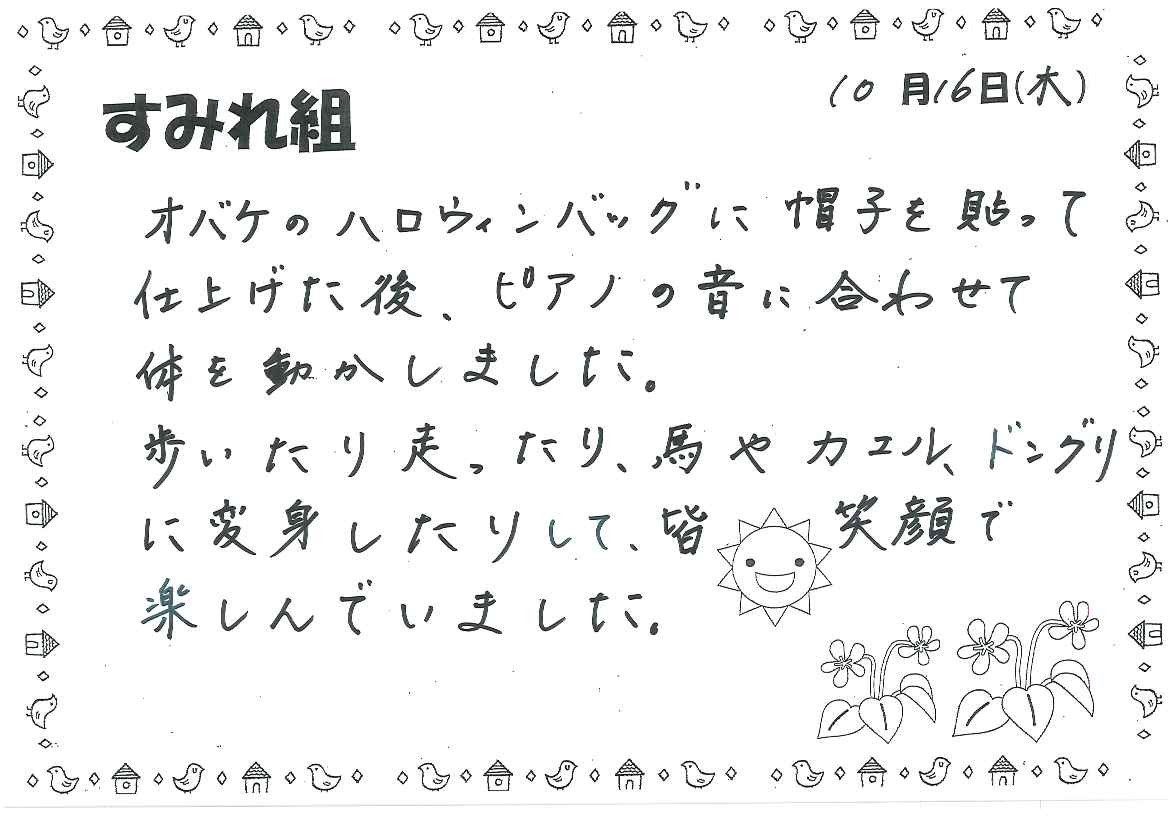 すみれ組
10月16日(木)
オバケのハロウィンバッグに帽子を貼って
仕上げた後、ピアノの音に合わせて
体を動かしました。
歩いたり走ったり、馬やカエル、ドングリ
に変身したりして、皆笑顔で
楽しんでいました。